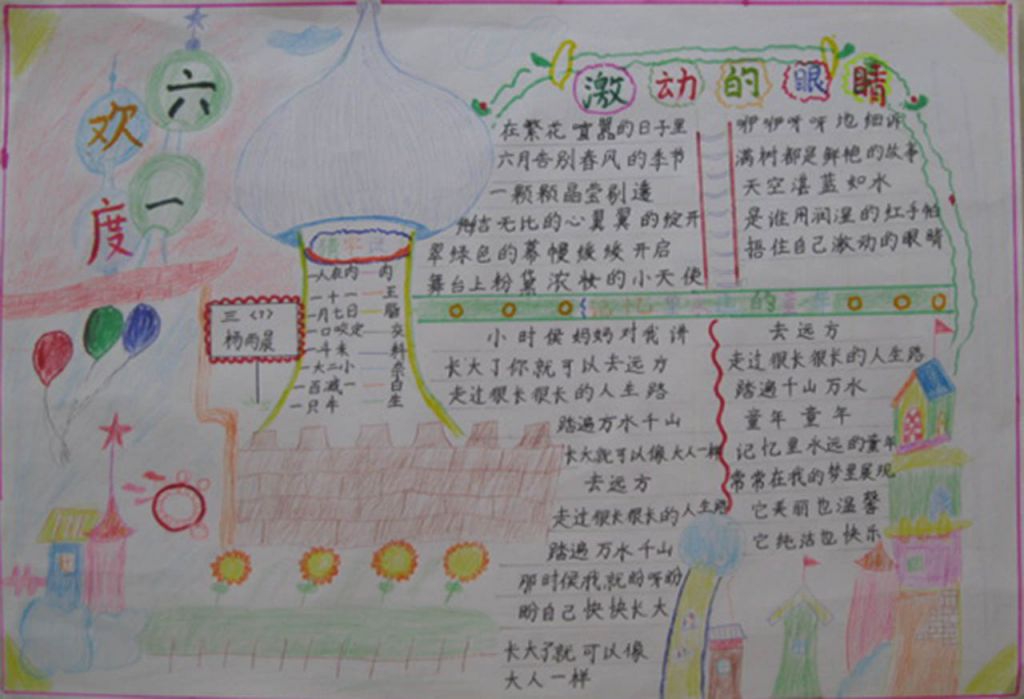 欢度六一
猜字谜
一人在内 肉
一十一 王
一月七日 脂
一口咬定 交
一斗米 料
一大二小 奈
一百减一 白
一只牛 生
三〈1〉
杨雨晨
激动的眼睛
在繁花喧嚣的日子里
六月告别春风的季节
一颗颗晶莹剔透
无比的心翼翼的绽开
翠绿色的幕幔缓缓开启
舞台上粉黛浓妆的小天使
咿咿呀呀地细诉
满树都是鲜艳的故事
天空湛蓝如水
是谁用润湿的红手帕
捂住自己激动的眼睛
记忆里永远的童年
小时侯妈妈对我讲
长大了你就可以去远方
走过很长很长的人生路
踏遍万水千山
长大就可以像大人一样
去远方
走过很长很长的人生路
踏遍万水千山
那时候我就盼呀盼
盼自己快快长大
长大了就可以像
大人一样
去远方
走过很长很长的人生路
踏遍千山万水
童年童年
记忆里永远的童年
常常在我的梦里展现
它美丽也温馨
它纯洁也快乐